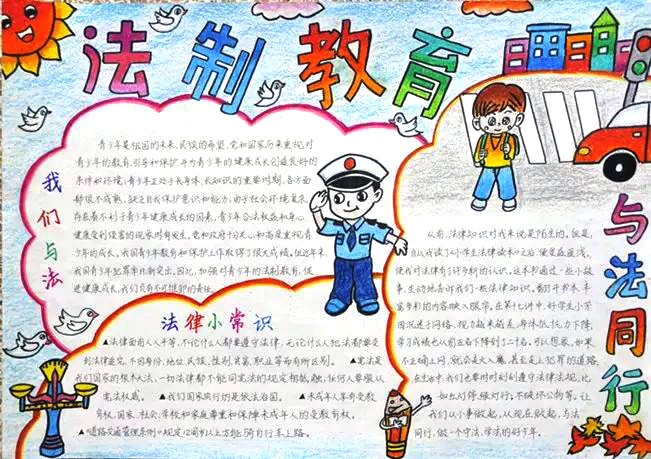 法制教育
我们与法
青少年是祖国的未来,民族的希望,党和国家历来重视对
青少年的教育、引导和保护,并为青少年的健康成长创造良好的
条件和环境,青少年正处于长身体、长知识的重要时期,各方面
都很不成熟,缺乏自我保护意识和能力,由于社会环境复杂,
存在着不利于青少年健康成长的因素,青少年合法权益和身心
健康受到侵害的现象时有发生,党和政府十分关心和高度重视青
少年的成长,我国青少年教育和保护工作取得了很大成绩。但近年来,
我国青少年犯罪率日渐突出,因此,加强对青少年的法制教育,促
进健康成长,我们负有不可推卸的责任。
法律小常识
▲法律面前人人平等,不论什么人都要遵守法律,无论什么人犯法都要受
到法律追究,不因身份、地位、民族、性别、贫富、职业等而有所区别。▲宪法是
我们国家的根本大法,一切法律都不能同宪法的规定相抵触,任何人要服从
宪法权威。▲我们国家实行的是依法治国。▲未成年人享有受教
育权,国家、社会、学校和家庭尊重和保障未成年人的受教育权。
▲《道路交通管理条例》规定12周岁以上方能骑自行车上路。
与法同行
从前,法律知识对我来说是陌生的。但是,
自从我读了《小学生法律读本》之后,便受益匪浅,
使我对法律有了许多新的认识。这本书通过一些小故
事,生动地告诉我们一些法律知识。翻开书本,丰
富多彩的内容映入眼帘。在第七讲中,好学生小荣
因沉迷于网络,视力越来越差,身体抵抗力下降,
学习成绩也从前五名下降到三十名。可以想象,如果
不正确上网,就会走火入魔,甚至走上犯罪的道路。
在生活中,我们也要时时刻刻遵守法律法规,比
如红灯停绿灯行,不破坏公物等。让
我们从小事做起,从现在做起,与法
同行,做一个守法、学法的好少年。